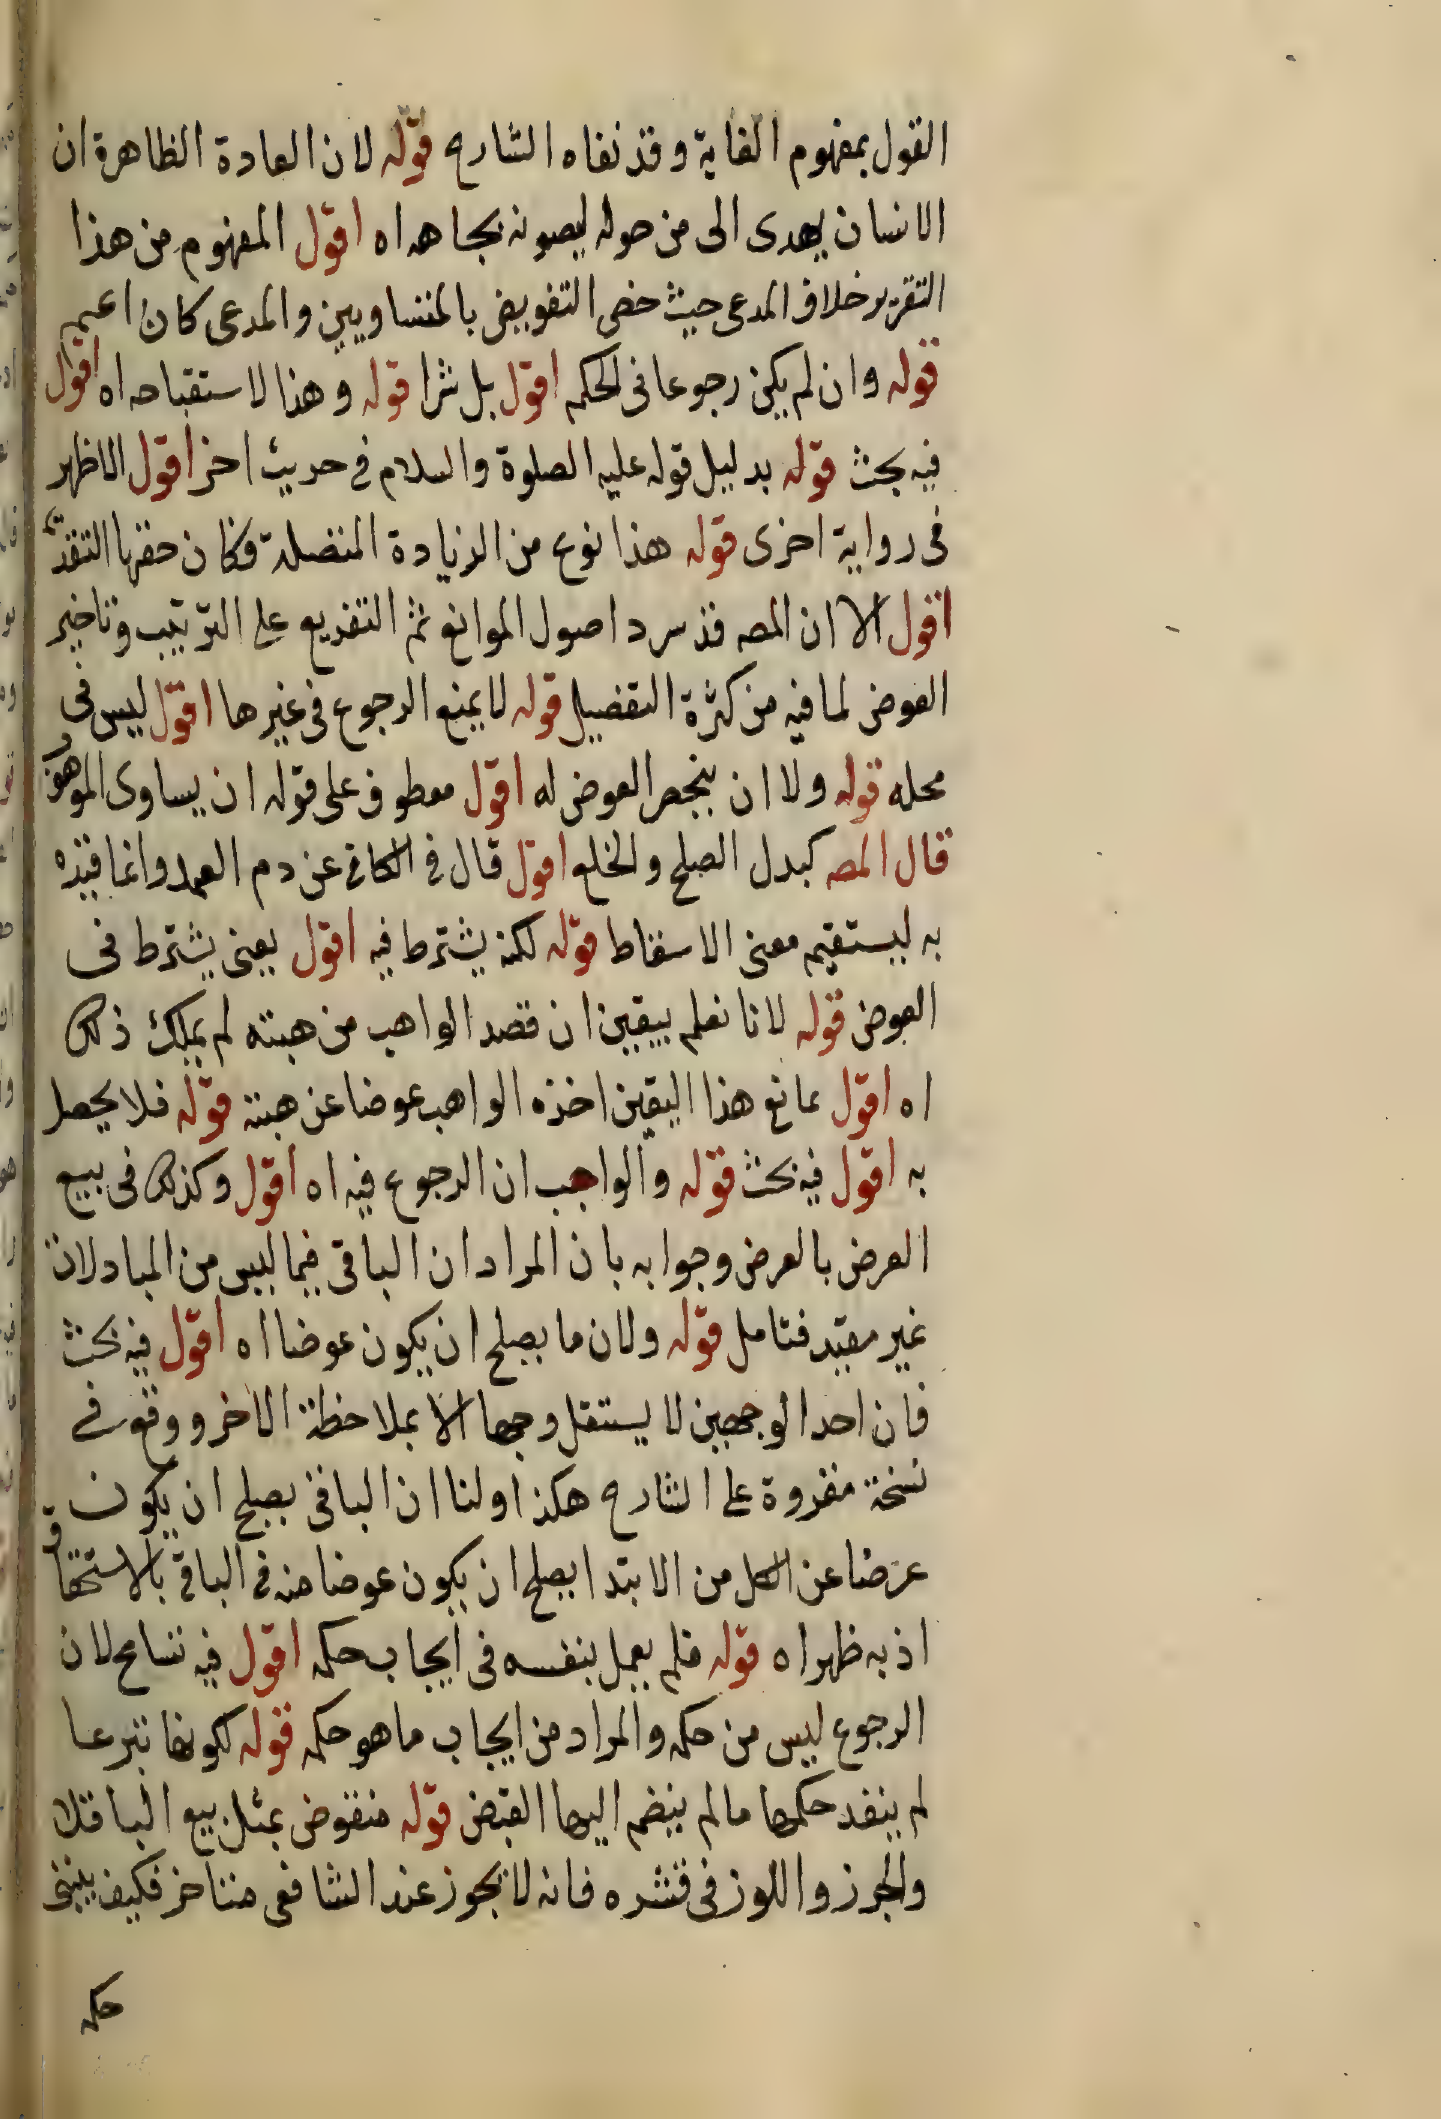 القول بمفهوم الغاية وقد نفاه الشارح قوله لان العادة الظاهرة ان
الانسان يهدى الى من حوله ليصونه بجاهه اه اقول المفهوم من هذا
التقرير خلاف المدعى حيث خص التفويض بالمتساويين والمدعى كان اعم
قوله وان لم يكن رجوعا فى الحكم اقول بل شرا قوله وهذا لاستقباحه اه اقول
فيه بحث قوله بدليل قوله عليه الصلوة والسلام فى حديث اخر اقول الاظهر
فى رواية اخرى قوله هذا نوع من الزيادة المتصلة وكان حقها التقديم
اقول الا ان المصه قد سرد اصول الموانع ثم التفريع على الترتيب وتاخير
العوض لما فيه من كثرة التفصيل قوله لا يمنع الرجوع فى غيرها اقول ليس فى
محله قوله ولا ان ينحصر العوض له اقول معطوف على قوله ان يساوى الموهوب
قال المصه كبدل الصلح والخلع اقول قال فى الكافى عن دم العمد وانما قيده
به ليستقيم معنى الاسقاط قوله لكنه يشترط فيه اقول يعنى يشترط فى
العوض قوله لانا نعلم بيقين ان قصد الواهب من هبته لم يملك ذلك
اه اقول مانع هذا اليقين اخذه الواهب عوضا عن هبته قوله فلا يحصل
به اقول فيه بحث قوله والواجب ان الرجوع فيه اه اقول وكذلك فى بيع
العرض بالعرض وجوابه بان المراد ان الباقى فيما ليس من المبادلات
غير مقيد فتامل قوله ولان ما يصلح ان يكون عوضا اه اقول فيه بحث
فان احد الوجهين لا يستقل وجها الا بملاحظة الاخر ووقع فى
نسخة مقروة على الشارح هكذا ولنا ان الباقى يصلح ان يكون
عرضا عن الكل من الابتدا يصلح ان يكون عوضا منه فى الباقى بالاستحقاق
اذ به ظهر اه قوله فلم يعمل بنفسه فى ايجاب حكمه اقول فيه تسامح لان
الرجوع ليس من حكمه والمراد من ايجاب ما هو حكمه قوله لكونها تبرعا
لم ينفد حكمها ما لم ينضم اليها القبض قوله منقوض بمثل بيع الباقلا
والجوز واللوز فى قشره فانه لا يجوز عند الشافعى متاخر فكيف ينبنى
حكمه